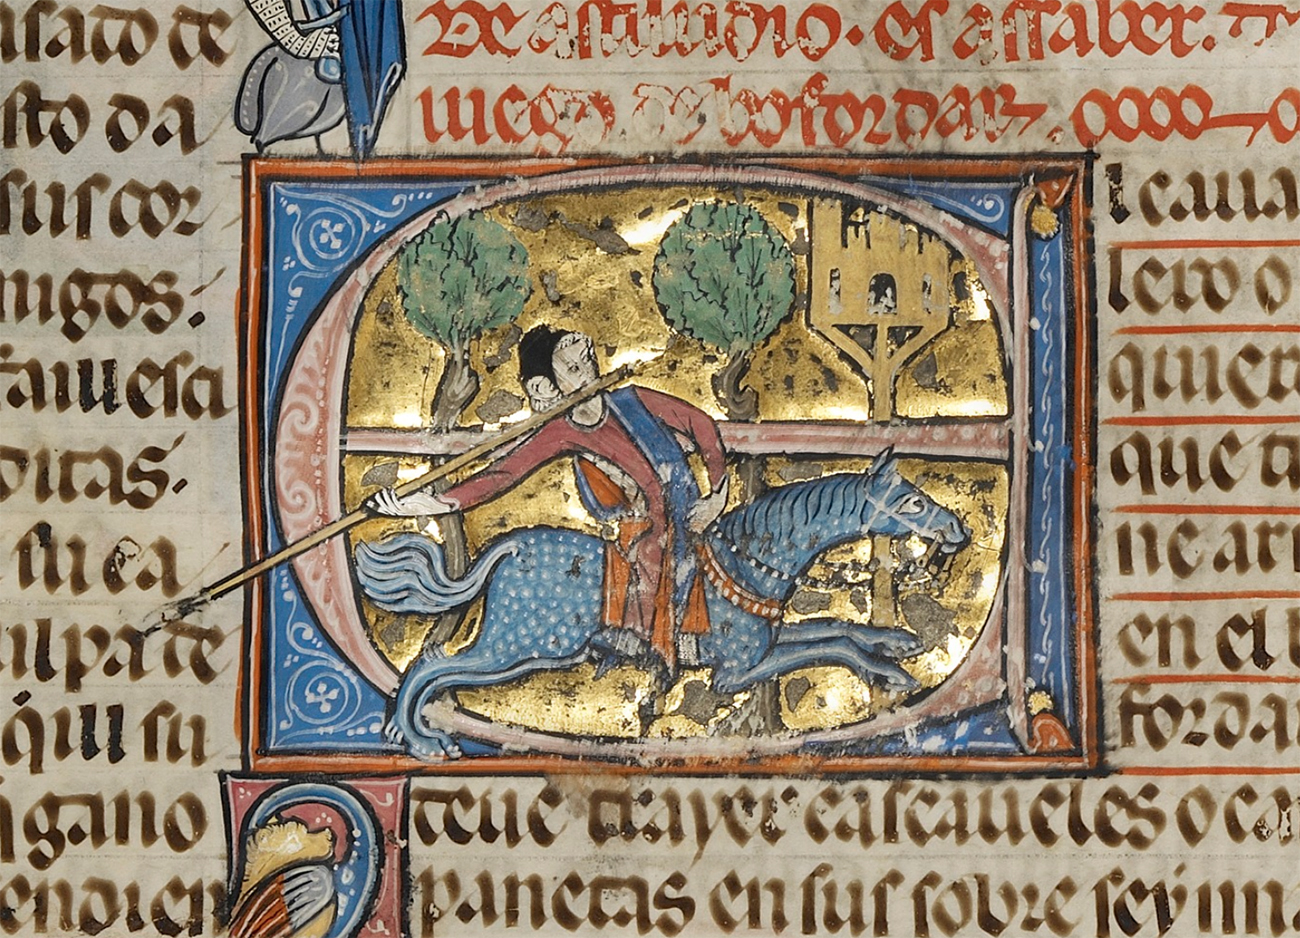 usato de
sto da
sus cor
migos:
ditas.
su ca
ulpa de
su
gano
endien
De astiludio. es assaber. de
iuego de bofordar.
l caua
lero o
quier
que
ne ar
en el
fordar
teue trayer cascaueles o ca
panetas en sus sobre seynn